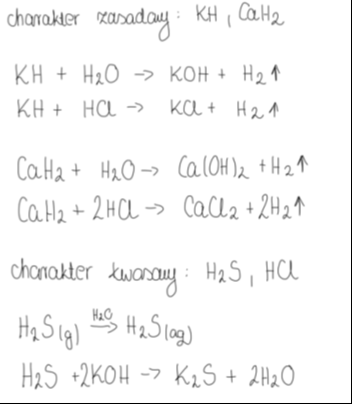 charakter zasadowy: KH, CaH₂
KH + H₂O → KOH + H₂↑
KH + HCl → KCl + H₂↑
CaH₂ + H₂O → Ca(OH)₂ + H₂↑
CaH₂ + 2HCl → CaCl₂ + 2H₂↑
charakter kwasowy: H₂S, HCl
H₂S(g) –H₂O→ H₂S(aq)
H₂S + 2KOH → K₂S + 2H₂O